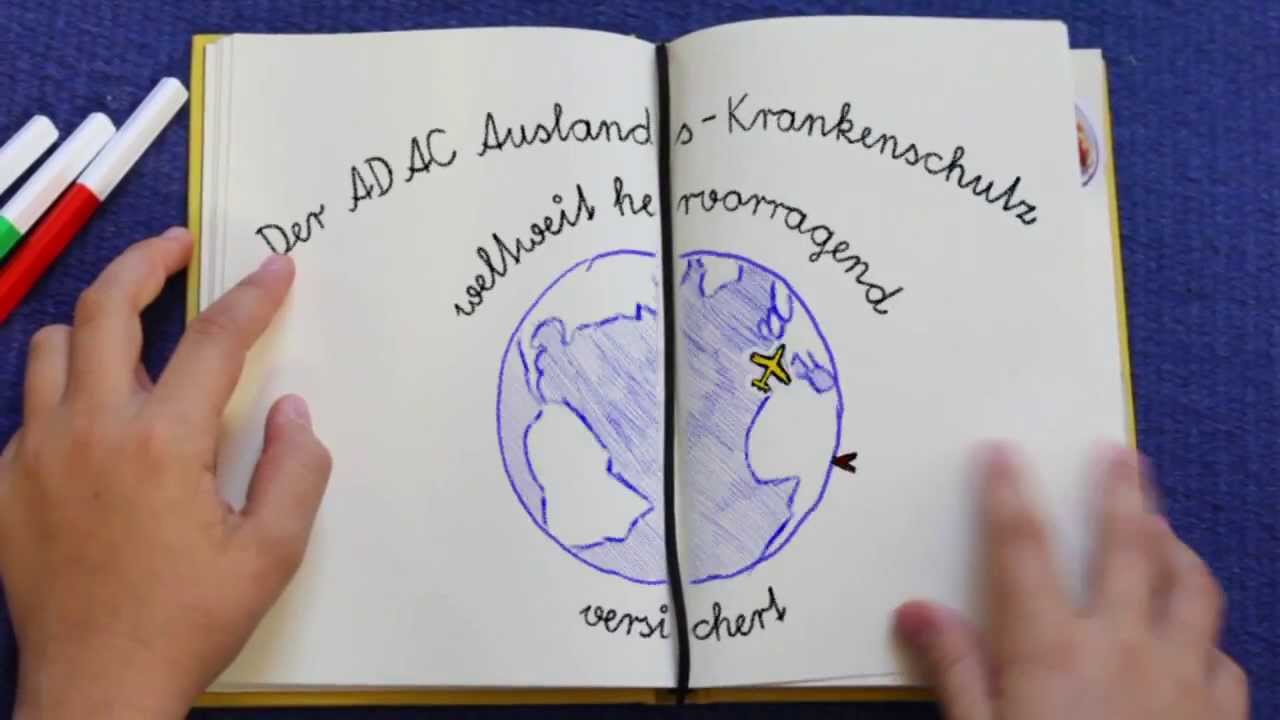 Der ADAC Auslands-Krankenschutz
weltweit hervorragend
versichert